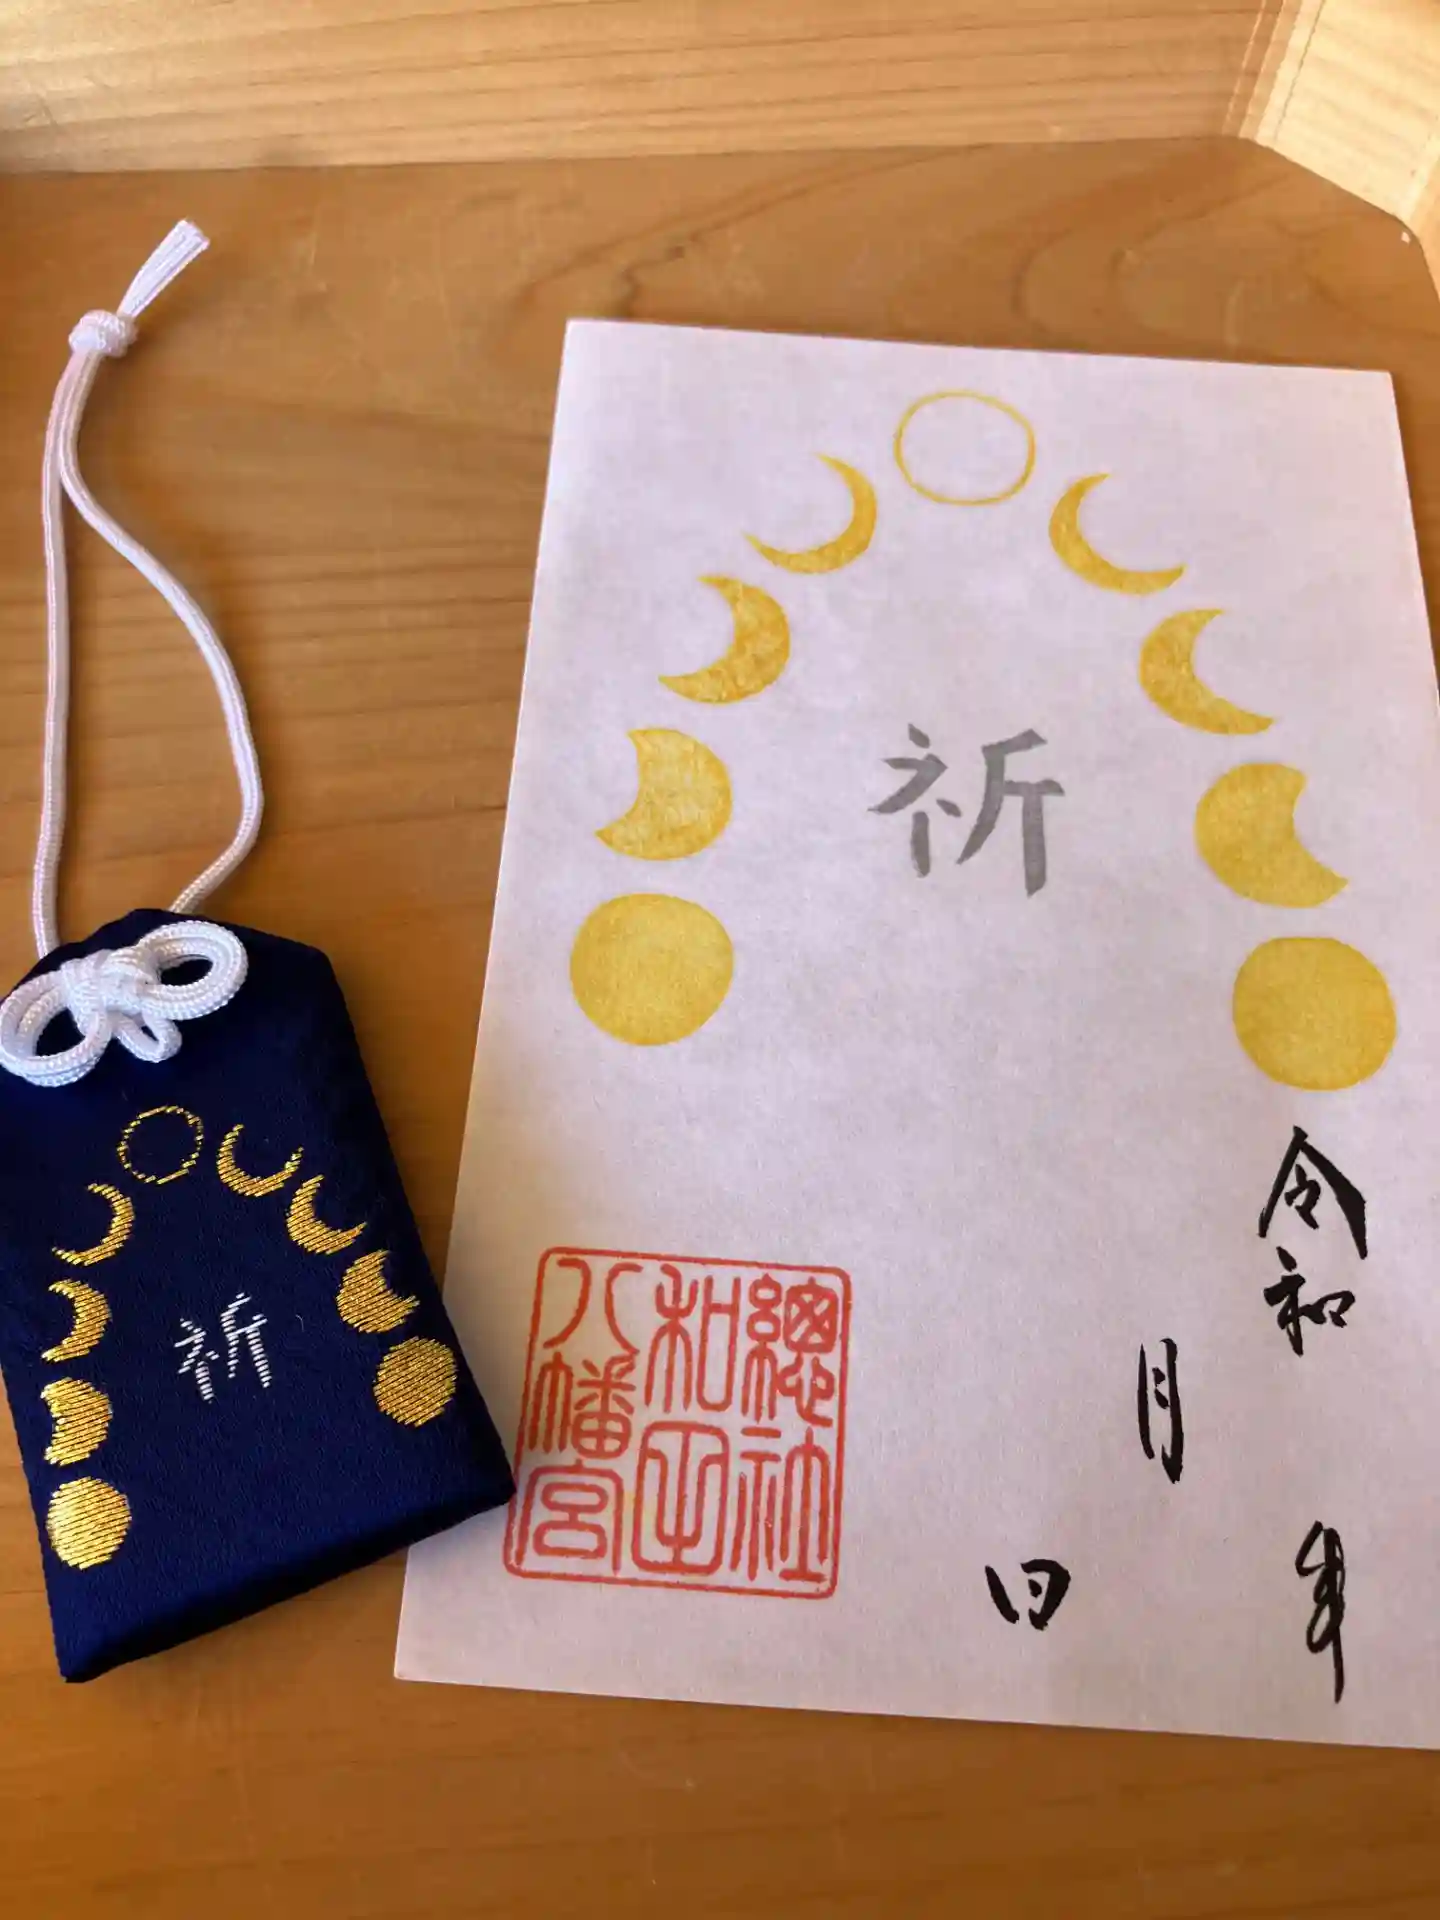 祈
令和
年
月
日
總社
和田
八幡宮
祈